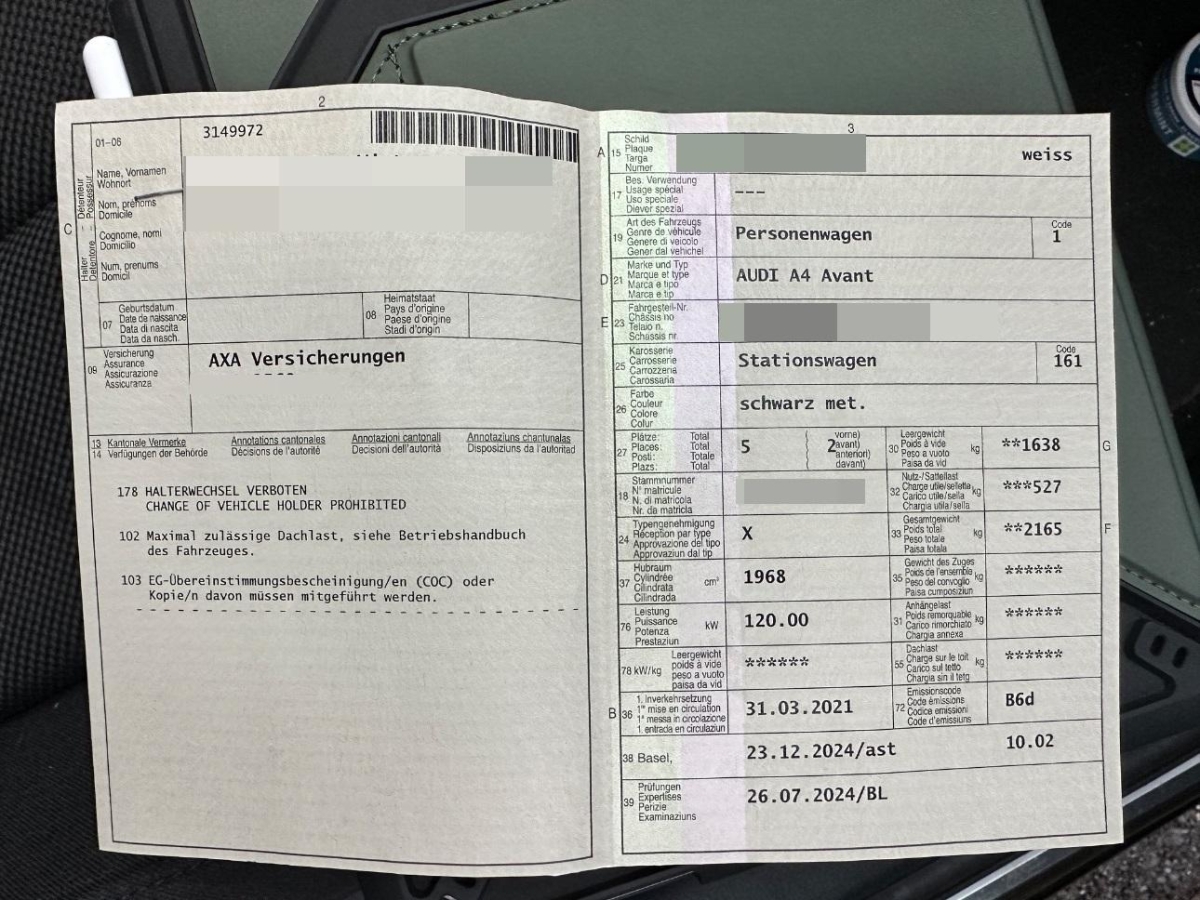 2
01-06
3149972
Halter - Détenteur
Detentore - Possessur
C
Name, Vornamen
Wohnort
Nom, prénoms
Domicile
Cognome, nomi
Domicilio
Num, prenums
Domicil
07
Geburtsdatum
Date de naissance
Data di nascita
Data da nasch.
08
Heimatstaat
Pays d'origine
Paese d'origine
Stadi d'origin
09
Versicherung
Assurance
Assicurazione
Assicuranza
AXA Versicherungen
----
13 Kantonale Vermerke Annotations cantonales Annotazioni cantonali Annotaziuns chantunalas
14 Verfügungen der Behörde Décisions de l'autorité Decisioni dell'autorità Disposiziuns da l'autoritad
178 HALTERWECHSEL VERBOTEN
CHANGE OF VEHICLE HOLDER PROHIBITED
102 Maximal zulässige Dachlast, siehe Betriebshandbuch
des Fahrzeuges.
103 EG-Übereinstimmungsbescheinigung/en (COC) oder
Kopie/n davon müssen mitgeführt werden.
3
A 15
Schild
Plaque
Targa
Numer
weiss
17
Bes. Verwendung
Usage spécial
Uso speciale
Diever spezial
---
19
Art des Fahrzeugs
Genre de véhicule
Genere di veicolo
Gener dal vehichel
Personenwagen
Code
1
D 21
Marke und Typ
Marque et type
Marca e tipo
Marca e tip
AUDI A4 Avant
E 23
Fahrgestell-Nr.
Châssis no
Telaio n.
Schassis nr.
25
Karosserie
Carrosserie
Carrozzeria
Carossaria
Stationswagen
Code
161
26
Farbe
Couleur
Colore
Colur
schwarz met.
27
Plätze: Total
Places: Total
Posti: Totale
Plazs: Total
5
2
vorne)
avant)
anteriori)
davant)
30
Leergewicht
Poids à vide
Peso a vuoto
Paisa da vid
kg
**1638
G
18
Stammnummer
N° matricule
N. di matricola
Nr. da matricla
32
Nutz-/Sattellast
Charge utile/sellette
Carico utile/sella
Chargia utila/sella
kg
***527
24
Typengenehmigung
Réception par type
Approvazione del tipo
Approvaziun dal tip
X
33
Gesamtgewicht
Poids total
Peso totale
Paisa totala
kg
**2165
F
37
Hubraum
Cylindrée
Cilindrata
Cilindrada
cm³
1968
35
Gewicht des Zuges
Poids de l'ensemble
Peso del convoglio
Paisa cumposiziun
kg
******
76
Leistung
Puissance
Potenza
Prestaziun
kW
120.00
31
Anhängelast
Poids remorquable
Carico rimorchiato
Chargia annexa
kg
******
78 kW/kg
Leergewicht
poids à vide
peso a vuoto
paisa da vid
******
55
Dachlast
Charge sur le toit
Carico sul tetto
Chargia sin il tetg
kg
******
B 36
1. Inverkehrsetzung
1re mise en circulation
1a messa in circolazione
1. entrada en circulaziun
31.03.2021
72
Emissionscode
Code émissions
Codice emissioni
Code d'emissiuns
B6d
38 Basel,
23.12.2024/ast
10.02
39
Prüfungen
Expertises
Perizie
Examinaziuns
26.07.2024/BL